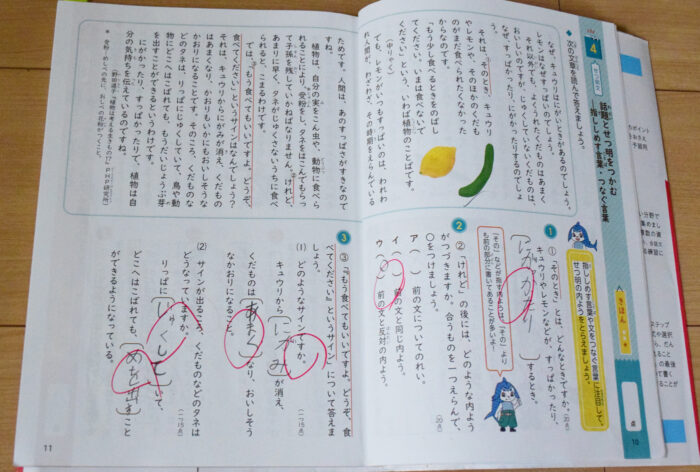 4
せつ明文
話題とせつ明をつかむ
指ししめす言葉・つなぐ言葉
◆次の文章を読んで答えましょう。
なぜ、キュウリはにがいときがあるのでしょう。
レモンはなぜすっぱいのでしょう。
それ以外でも、よくうれたくだものはあまく
おいしいのですが、じゅくしていないくだものは、
なぜ、すっぱかったり、にがかったりするのでしょ
う。
それは、そのとき、キュウリ
やレモンや、そのほかのくだも
のがまだ食べられたくなかった
からなのです。
「もう少し食べるときをのばし
てください。いまは食べないで
ください」という、いわば植物のことばです。
でも、レモンがいつもすっぱいのは、われわ
れ人間が、わざわざ、その時期をえらんでいる
ためです。人間は、あのすっぱさがすきなので
すね。
植物は、自分の実をこん虫や、動物に食べら
れることにより、受粉をし、タネをはこんでもらっ
て子孫を残していかねばなりません。けれど、
あまりに早く、タネがじゅくさないうちに食べ
られると、こまるわけです。
では、「もう食べてもいいですよ。どうぞ、
食べてください」というサインはなんでしょう?
それは、キュウリからにがみが消え、くだもの
はあまくなり、かおりもいかにもおいしそうな
かおりになることです。そのころ、くだものな
どのタネは、りっぱにじゅくしていて、鳥や動
物にどこへはこばれても、もうだいじょうぶ芽
を出すことができるというわけです。
にがかったり、すっぱかったりで、植物は自
分の気持ちを伝えているのですね。
PHP研究所)
指ししめす言葉や文をつなぐ言葉に注目して、
せつ明の内ようをとらえましょう。
きほん
点
1
①「そのとき」とは、どんなときですか。
キュウリやレモンなどが、すっぱかったり、
にがかったり
するとき。
(20点)
「その」などが指す内ようは、「その」より
も前の部分に書いてあることが多いよ。
2
②「けれど」の後には、どのような内よう
がつづきますか。合うものを一つえらんで、
○をつけましょう。
(20点)
ア( )前の文についてのれい。
イ( )前の文と同じ内よう。
ウ(○)前の文と反対の内よう。
3
③「もう食べてもいいですよ。どうぞ、食
べてください」というサインについて答えま
しょう。
(1) どのようなサインですか。
(一つ15点)
キュウリから
にがみ
が消え、
くだものは
あまく
なり、おいしそう
なかおりになること。
(2) サインが出るころ、くだものなどのタネは
どうなっていますか。
(一つ15点)
りっぱに
じゅくして
いて、
どこへはこばれても、
めを出す
こと
ができるようになっている。
11
10